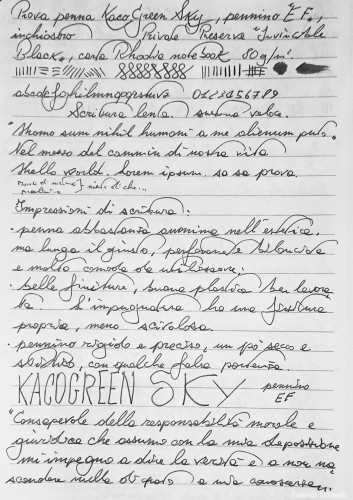 Prova penna KacoGreen Sky, pennino "EF",
inchiostro Private Reserve "Invincible
Black", carta Rhodia notebook 80g/m².
abcdefghilmnopqrstuvz 0123456789
Scrittura lenta. scrittura veloce.
"Homo sum nihil humani a me alienum puto"
Nel mezzo del cammin di nostra vita
Hello world. Lorem ipsum. sa sa prova.
niente di che...
Impressioni di scrittura:
· penna abbastanza anonima nell'estetica,
ma lunga il giusto, perfettamente bilanciata
e molto comoda da utilizzare;
· belle finiture, buona plastica ben lavora
ta. L'impugnatura ha una finitura
propria, meno scivolosa.
· pennino rigido e preciso, un pò secco e
, con qualche falsa partenza.
KACOGREEN SKY pennino
EF
"Consapevole della responsabilità morale e
giuridica che assumo con la mia deposizione
mi impegno a dire la verità e a non na
scondere nulla di quanto a mia conoscenza.